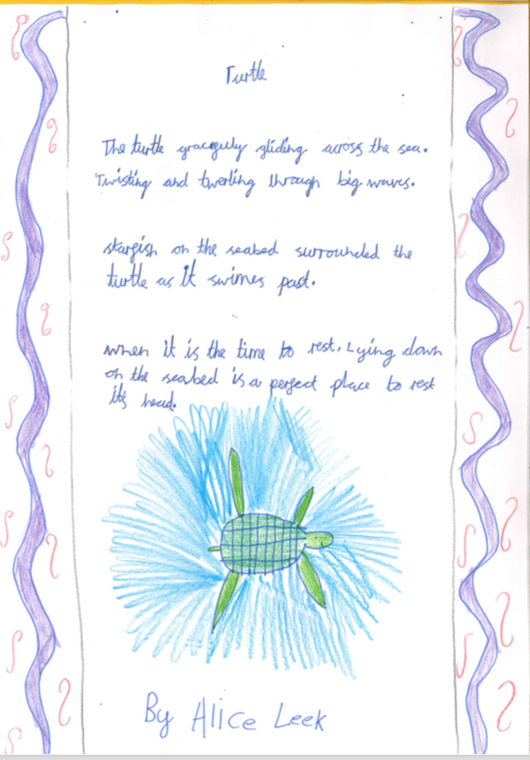 Turtle
The turtle gracefuly gliding across the sea.
Twisting and twerling through big waves.
starfish on the seabed surrounded the
turtle as it swimes past.
when it is the time to rest. Lying down
on the seabed is a perfect place to rest
its head.
By Alice Leek